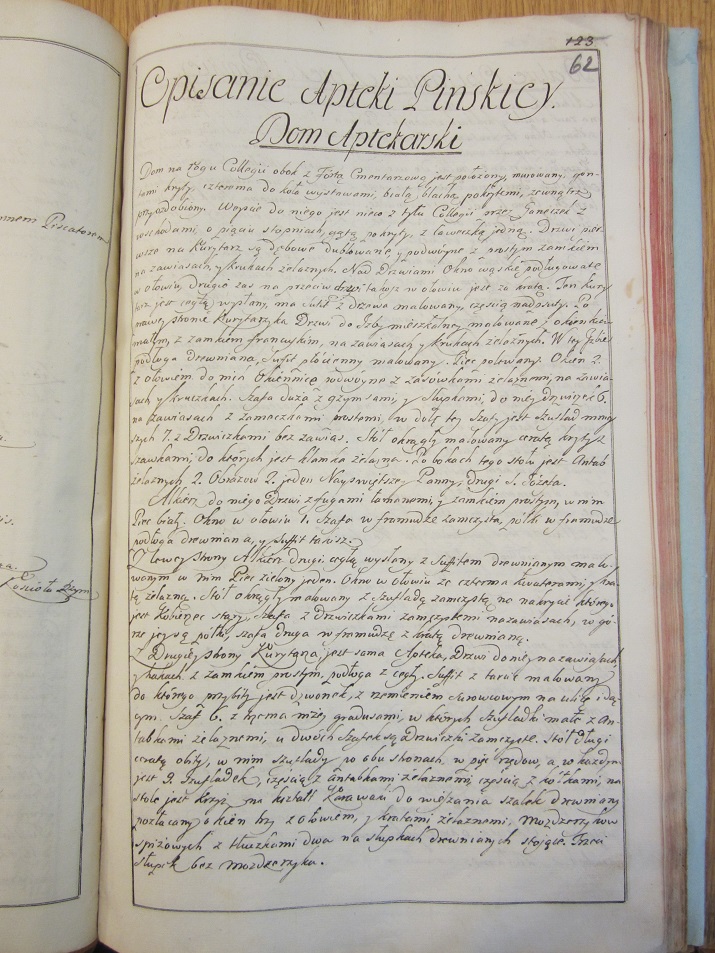 123
62
Opisanie Apteki Pińskiey.
Dom Aptekarski
Dom na rogu Collegii obok z Fortą Cmentarzową jest położony, murowany, gon-
tami kryty, czterema do koła wystawami, białą blachą pokrytemi, zewnątrz
przyozdobiony. Weyście do niego jest nieco z tyłu Collegii przez Ganeczek z
wschodami, o pięciu stopniach, gątą pokryty, z ławeczką jedną. Drzwi pier
wsze na Kurytarz są dębowe dublowane y podwoyne z prostym zamkiem
na zawiasach y krukach żelaznych. Nad Drzwiami Okno wąskie podługowate
w ołowiu, drugie zaś na przeciw drzwi takoż w ołowiu jest za kratą. Ten kury
tarz jest cegłą wysłany, ma sufit z Drzewa malowany, częścią nadpsuty. Po
prawey stronie Kurytarzyka Drzwi do Izby mieszkalney malowane, z okienkiem
małym, z zamkiem francuskim, na zawiasach y krukach żelaznych. W tey Izbie
podłoga Drewniana, Sufit płócienny malowany. Piec polewany. Okien 2.
z ołowiem, do nich Okiennice podwoyne z zasówkami żelaznemi, na zawia-
sach y kruczkach. Szafa duża z gzymsami, y Słupkami, do niey drzwiczek 6.
na zawiasach z zameczkami prostemi, w dole tey Szafy jest Szuflad mniey
szych 7. z Drzwiczkami bez zawias. Stół okrągły malowany ceratą kryty z
szawkami, do których jest klamka żelazna. Po bokach tego stołu jest Antab
żelaznych 2. Obrazów 2. jeden Nayświętszey Panny, drugi S. Józefa.
Alkierz do niego Drzwi z fugami łamanemi, y zamkiem prostym, w nim
Piec biały. Okno w ołowiu 1. Szafa w framudze zamczysta, półki w framudze
podłoga drewniana, y Suffit takisz.
Z lewey strony Alkierz drugi cegłą wysłany z Sufitem drewnianym malo-
wanym w nim Piec zielony jeden. Okno w ołowiu ze czterma kwaterami, y kra-
tą żelazną. Stół okrągły malowany z Szufladą zamczystą, na nakrycie którego
jest Kobierzec stary, Szafa z drzwiczkami zamczystemi na zawiasach, w gó-
rze jey są półki, szafa druga w framudze z kratą drewnianą.
Z Drugiey strony Kurytarza, jest sama Apteka, Drzwi do niey na zawiasach
y hakach z zamkiem prostym, podłoga z cegły. Suffit z tarcic malowany
do którego przybity jest dzwonek, z rzemieniem surowcowym na ulicę idą-
cym. Szaf 6. z trzema niżey gradusami, w których Szufladki małe z An-
tabkami żelaznemi, u dwóch Szafek są drzwiczki zamczyste. Stół długi
ceratą obity, w nim Szuflady po obu stronach, w pięć rzędow, a w każdym
jest 9. Szufladek, częścią z antabkami żelaznemi, częścią z kółkami, na
stole jest Krzyż na kształt Karawaki do wieszania szalek drewniany
pozłacany, okien trzy z ołowiem, y kratami żelaznemi, moździerzyków
spiżowych z tłuczkami dwa na słupkach drewnianych stojące. Trzeci
słupek bez moździerzyka.